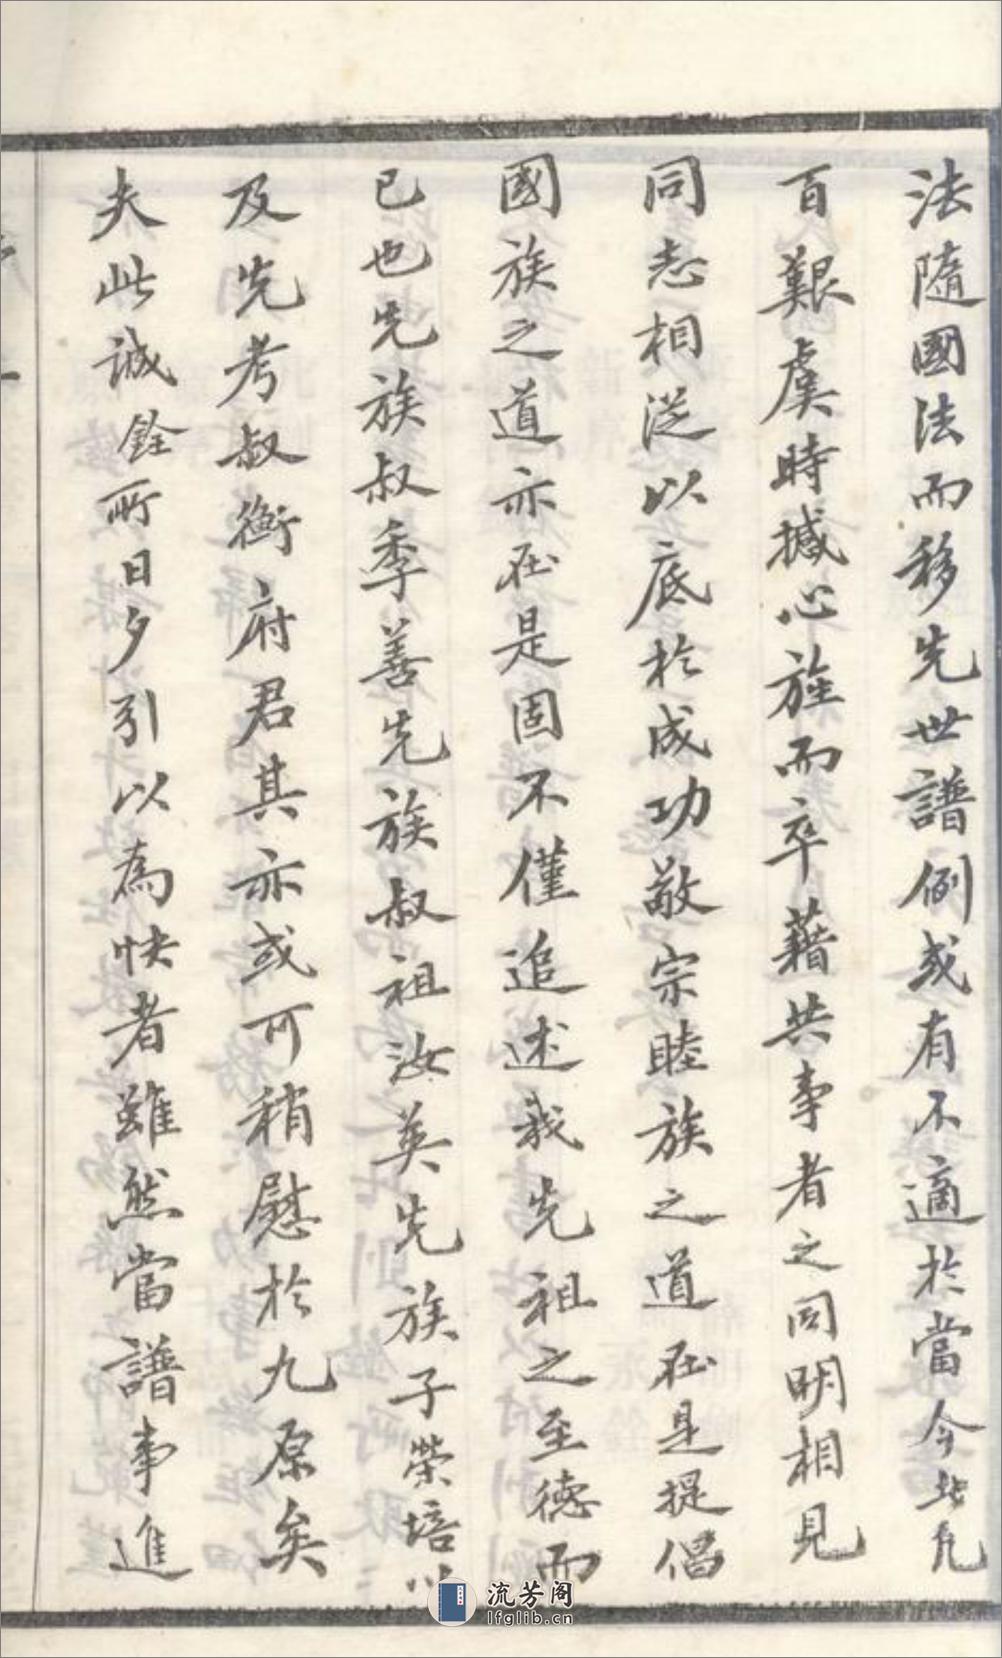 法隨國法而移先世譜例或有不適於當今此凡
百艱虞時撼心旌而卒藉共事者之同明相見
同志相從以底於成功敬宗睦族之道在是提倡
國族之道亦在是固不僅追述我先祖之至德而
已也先族叔季善先族叔祖汝英先族子榮培以
及先考叔衡府君其亦或可稍慰於九原矣
夫此誠銓所日夕引以為快者雖然當譜事進
流芳阁
lfglib.cn